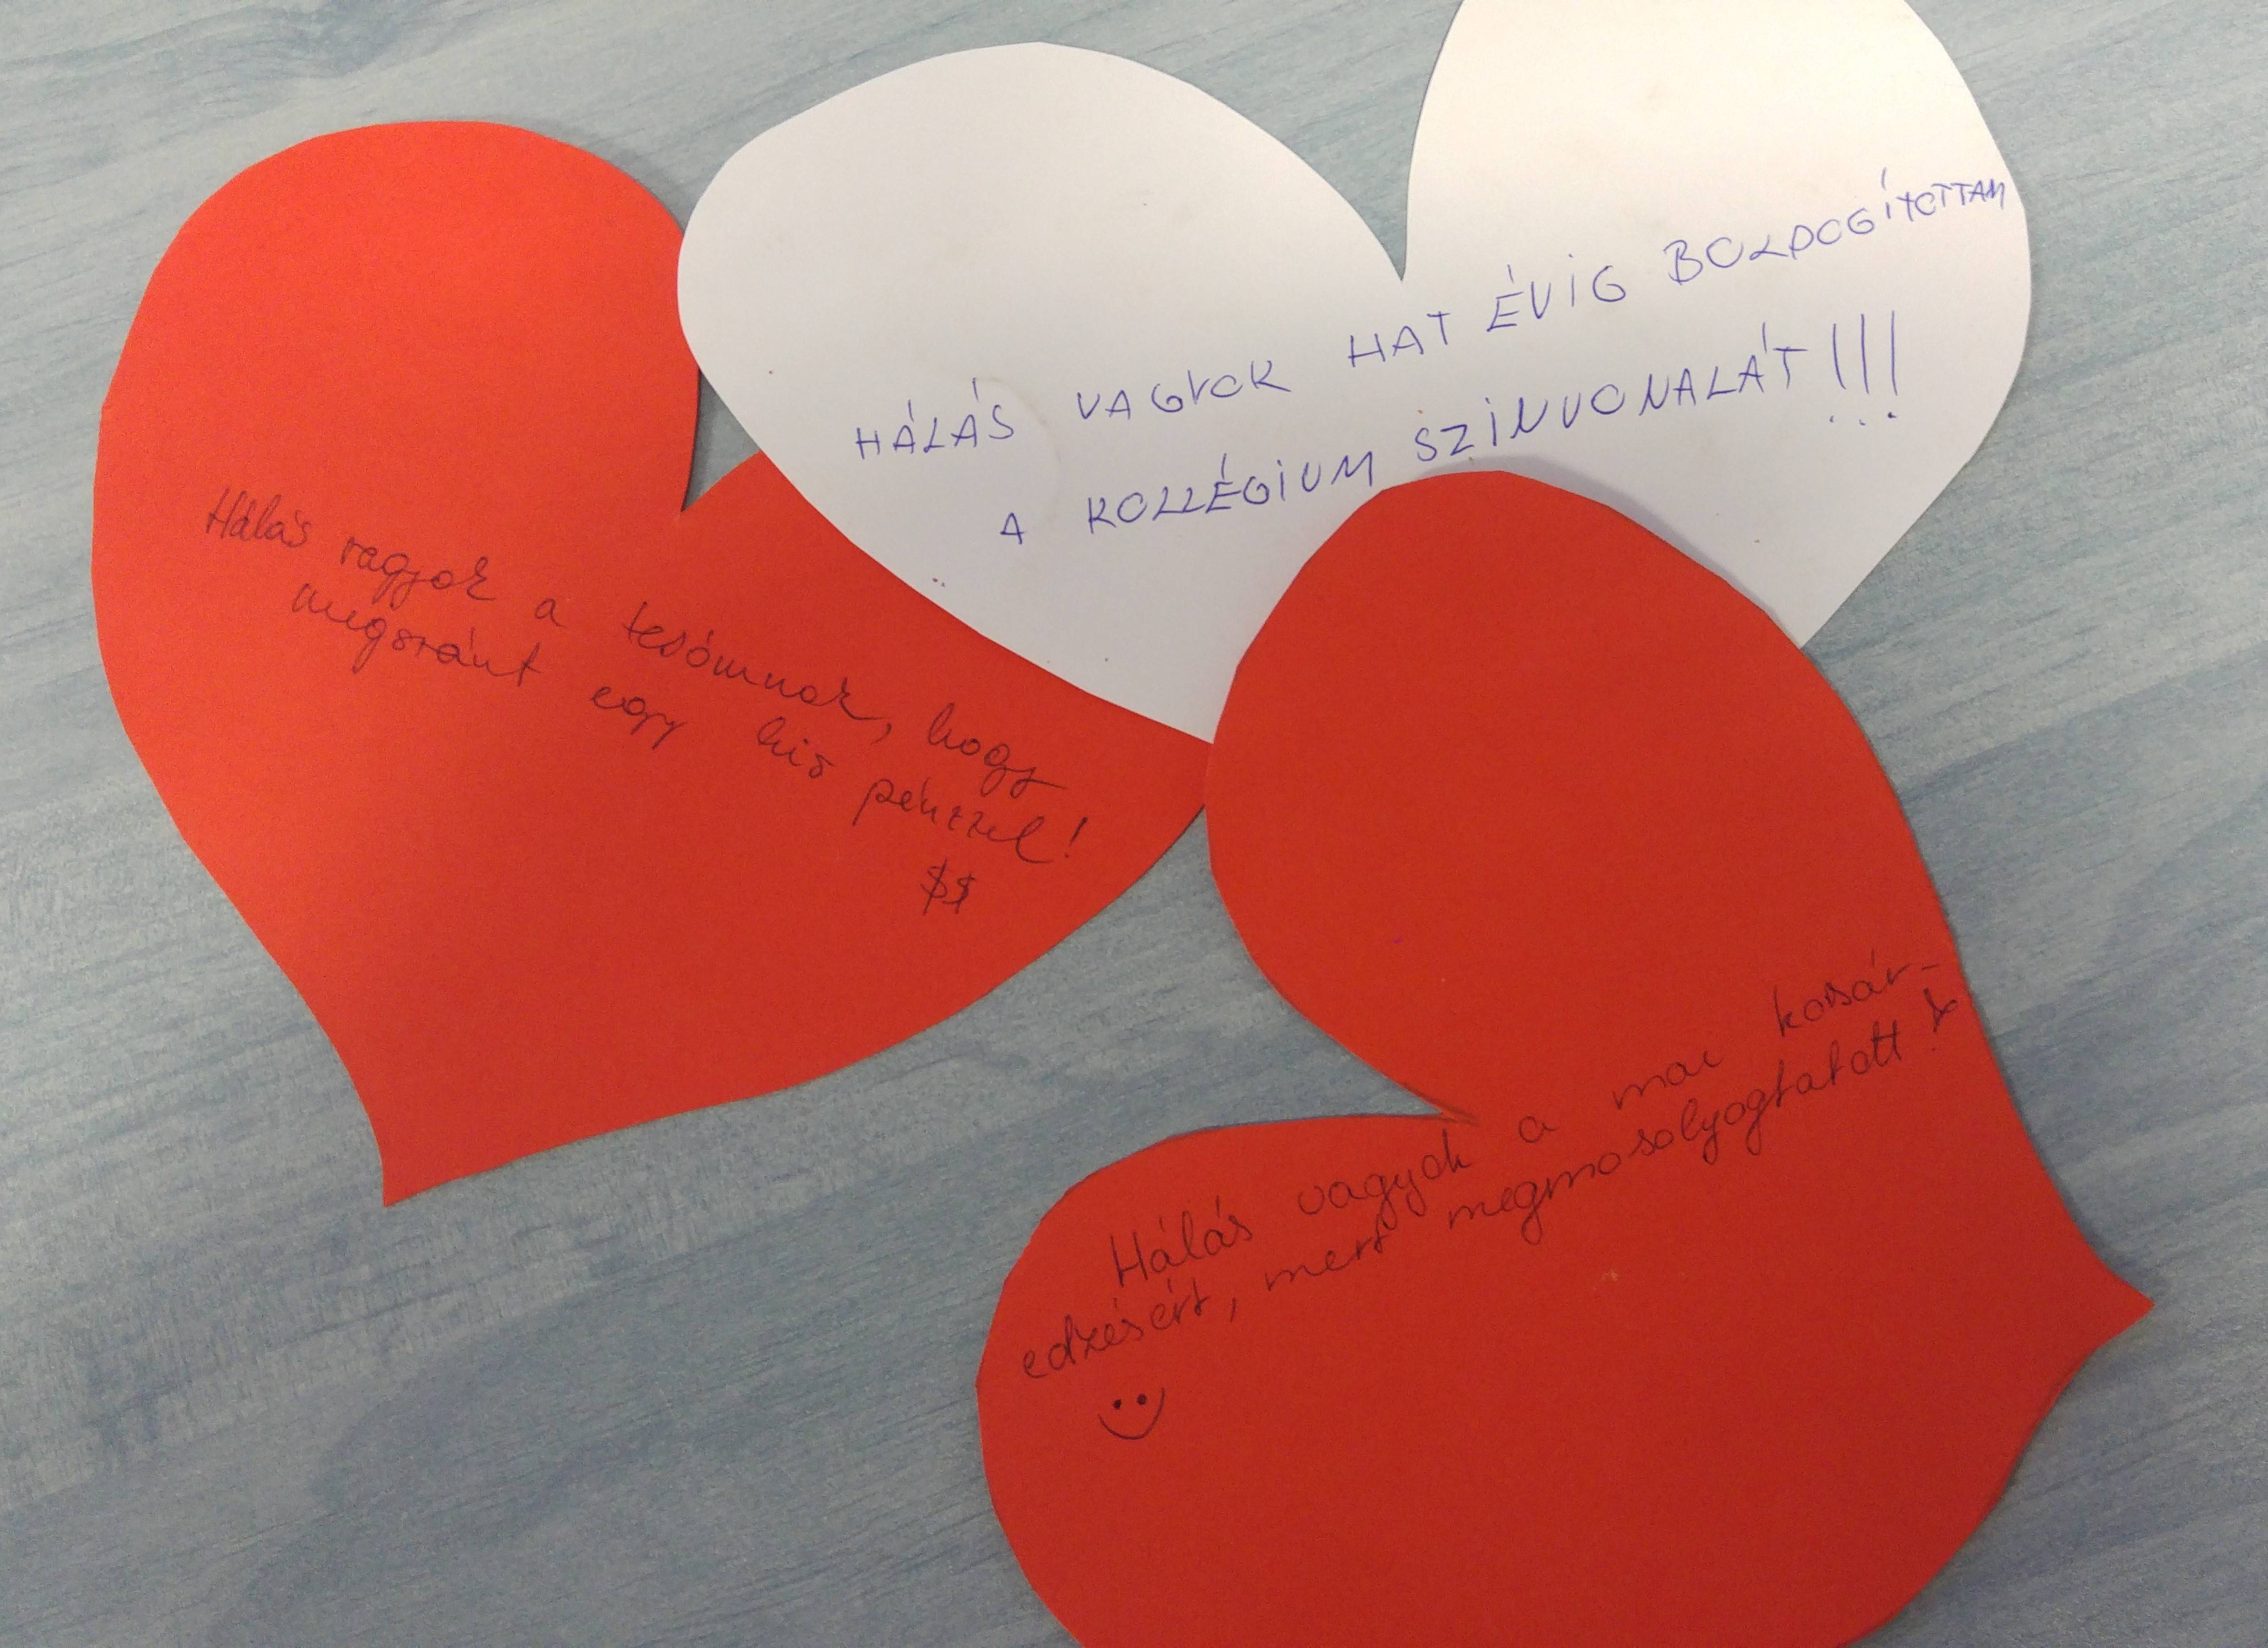 Hálás vagyok a tesómnak, hogy
megszánt egy kis pénzzel!
$$
HÁLÁS VAGYOK HAT ÉVIG BOLDOGÍTOTTAM
A KOLLÉGIUM SZÍNVONALÁT!!!
Hálás vagyok a mai kosár-
edzésért, mert megmosolyogtatott!